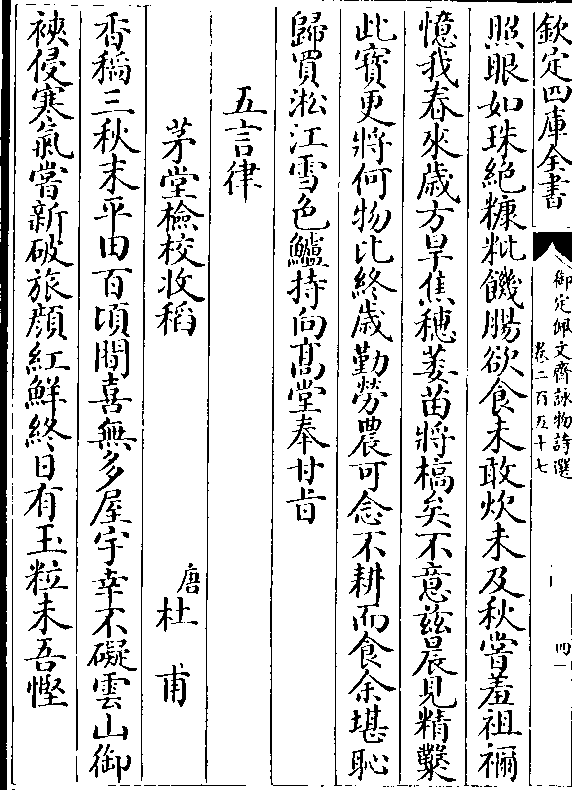 欽定四庫全書
御定佩文齋詠物詩選
卷二百五十七
四一
照眼如珠絶糠粃饑腸欲食未敢炊未及秋嘗羞祖禰
憶我春來歲方旱焦穗萎苗將槁矣不意兹晨見精糳
此寳更將何物比終歲勤勞農可念不耕而食余堪恥
歸買淞江雪色鱸持向髙堂奉甘㫖
五言律
茅堂檢校收稻
唐杜甫
香稻三秋末平田百頃間喜無多屋宇幸不礙雲山御
裌侵寒氣嘗新破旅顔紅鮮終日有玉粒未吾慳